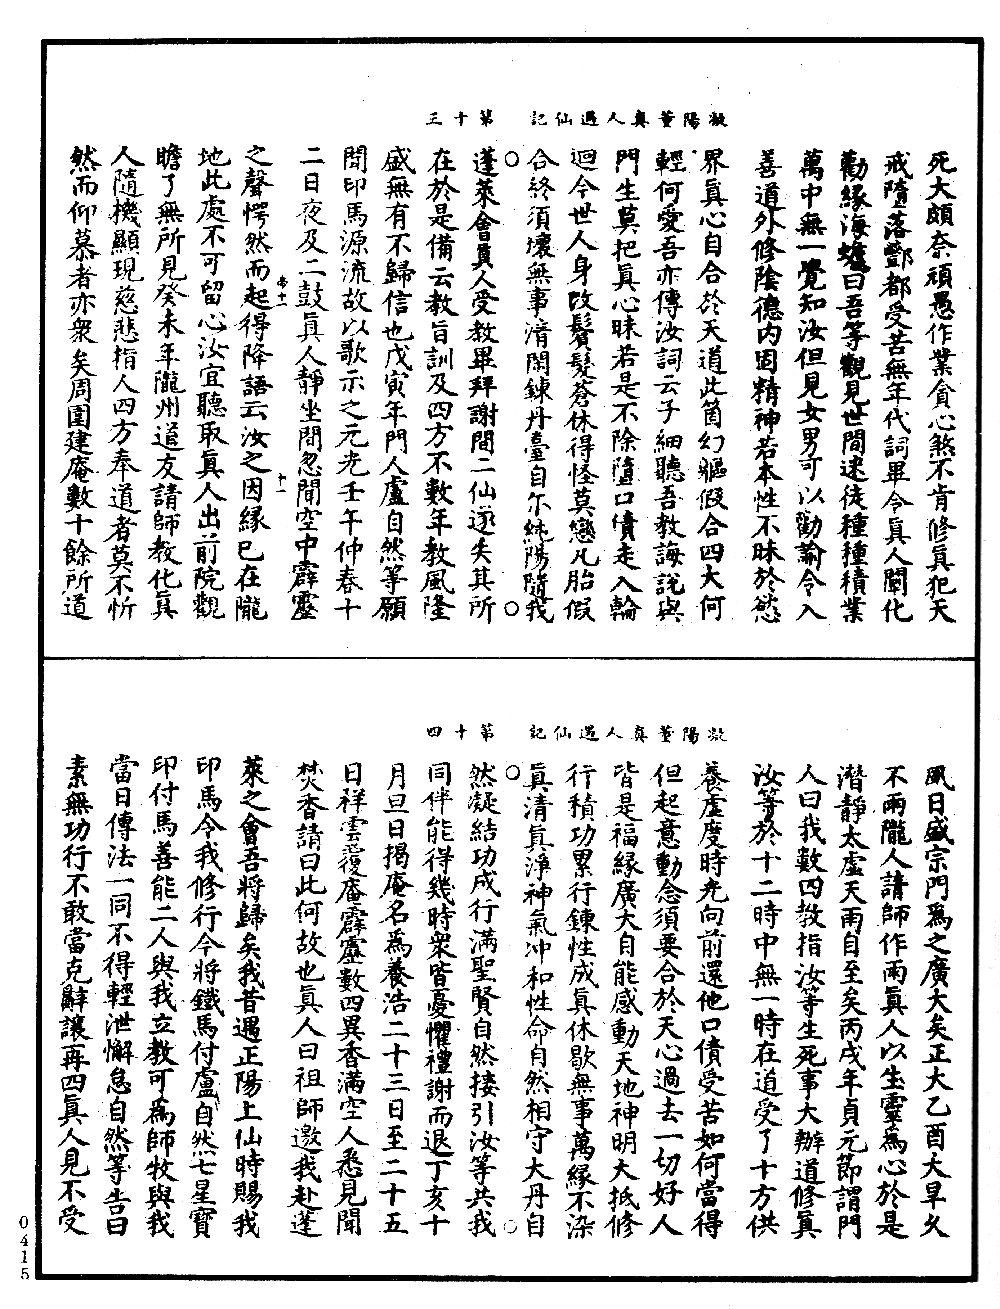 凝陽董真人遇仙記　第十三
死大頗奈頑愚作業貪心煞不肯修真犯天
戒墮落酆都受苦無年代詞畢令真人闡化
勸緣海蟾曰吾等觀見世間迷徒種種積業
萬中無一覺知汝但見女男可以勸諭令入
善道外修陰德內固精神若本性不昧於慾
界真心自合於天道此箇幻軀假合四大何
輕何愛吾亦傳汝詞云子細聽吾教誨說與
門生莫把真心昧若是不除隨口債走入輪
迴今世人身改鬢髮蒼休得怪莫戀凡胎假
合終須壞無事清閑鍊丹臺自尔純陽隨我
蓬萊會真人受教畢拜謝間二仙遂失其所
在於是備云教旨訓及四方不數年教風隆
盛無有不歸信也戊寅年門人盧自然等願
聞印馬源流故以歌示之元光壬午仲春十
二日夜及二鼓真人靜坐間忽聞空中霹靂
之聲愕然而起得降語云汝之因緣已在隴
地此處不可留心汝宜聽取真人出前院觀
瞻了無所見癸未年隴州道友請師教化真
人隨機顯現慈悲指人四方奉道者莫不忻
然而仰慕者亦衆矣周圍建庵數十餘所道
凝陽董真人遇仙記　第十四
風日盛宗門爲之廣大矣正大乙酉大旱久
不雨隴人請師作雨真人以生靈爲心於是
潛靜太虛天雨自至矣丙戌年貞元節謂門
人曰我數四教指汝等生死事大辦道修真
汝等於十二時中無一時在道受了十方供
養虛度時光向前還他口債受苦如何當得
但起意動念須要合於天心過去一切好人
皆是福緣廣大自能感動天地神明大抵修
行積功累行鍊性成真休歇無事萬緣不染
真清真淨神氣冲和性命自然相守大丹自
然凝結功成行滿聖賢自然接引汝等共我
同伴能得幾時衆皆憂懼禮謝而退丁亥十
月旦日揭庵名爲養浩二十三日至二十五
日祥雲覆庵霹靂數四異香滿空人悉見聞
焚香請曰此何故也真人曰祖師邀我赴蓬
萊之會吾將歸矣我昔遇正陽上仙時賜我
印馬今我修行今將鐵馬付盧自然七星寶
印付馬善能二人與我立教可爲師牧與我
當日傳法一同不得輕泄懈怠自然等告曰
素無功行不敢當克辭讓再四真人見不受
0415